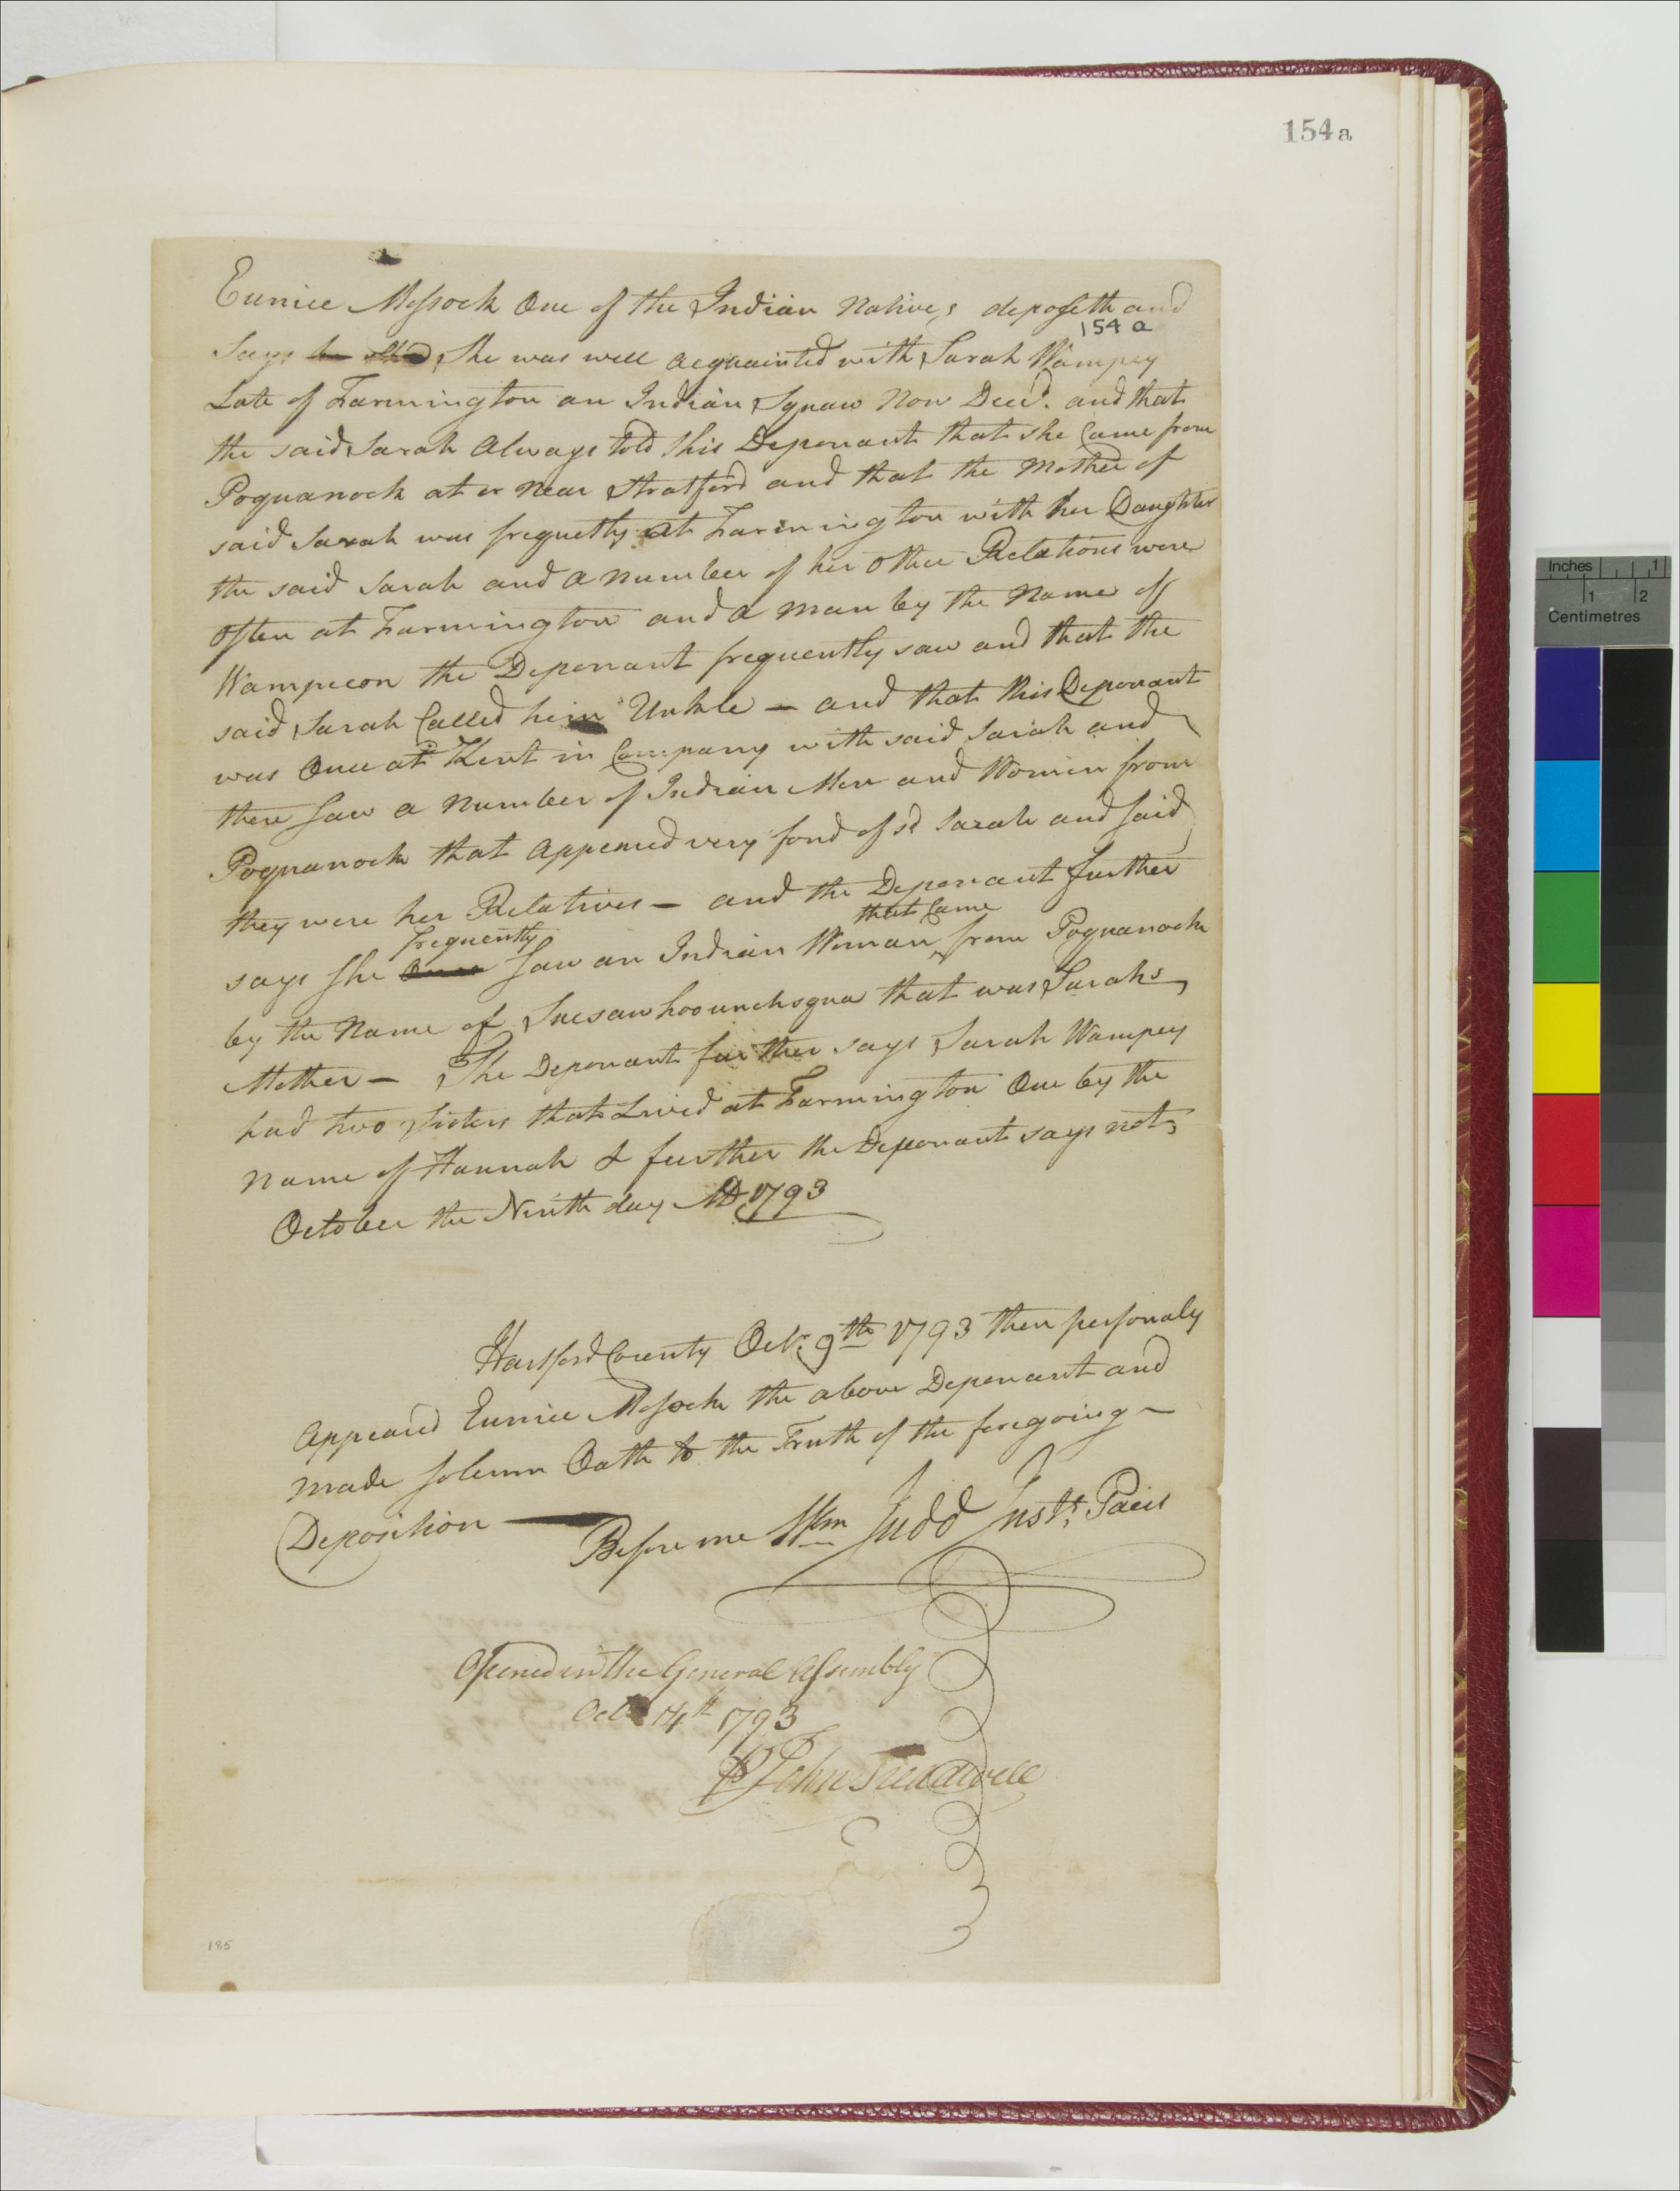 154a
Eunice Mossock One of the Indian Natives deposeth and
154 a
Says She was well acquainted with Sarah Wampey
Late of Farmington an Indian Squaw Now Decd. and that
the said Sarah Always told this Deponant that she Came from
Poquanock at or near Stratford and that the Mother of
said Sarah was frequetly at Farmington with her Daughter
the said Sarah and a number of her other Relations were
often at Farmington and a man by the Name of
Wampeon the Deponant frequently saw and that the
said Sarah Called him Unkle — and that this Deponant
was Once at Kent in Company with said Sarah and
there Saw a Number of Indian Men and Women from
Poquanock that Appeared very fond of sd Sarah and said
they were her Relatives — and the Deponant further
frequently that Came
says She Once Saw an Indian Woman from Poquanock
by the Name of Suesawhoounchsqua that was Sarahs
Mother — The Deponant further says Sarah Wampey
had two Sisters that Lived at Farmington One by the
Name of Hannah & further the Deponant says not,
October the Ninth day AD. 1793
Hartford County Octr. 9th 1793 then personaly
Appeared Eunice Mossock the above Deponant and
made Solemn Oath to the Truth of the foregoing —
Deposition —
Before me Wm Judd Just. Pacis
Opened in the General Assembly
Octr 14th 1793
P John Treadwell
185
Inches 1
1 2
Centimetres